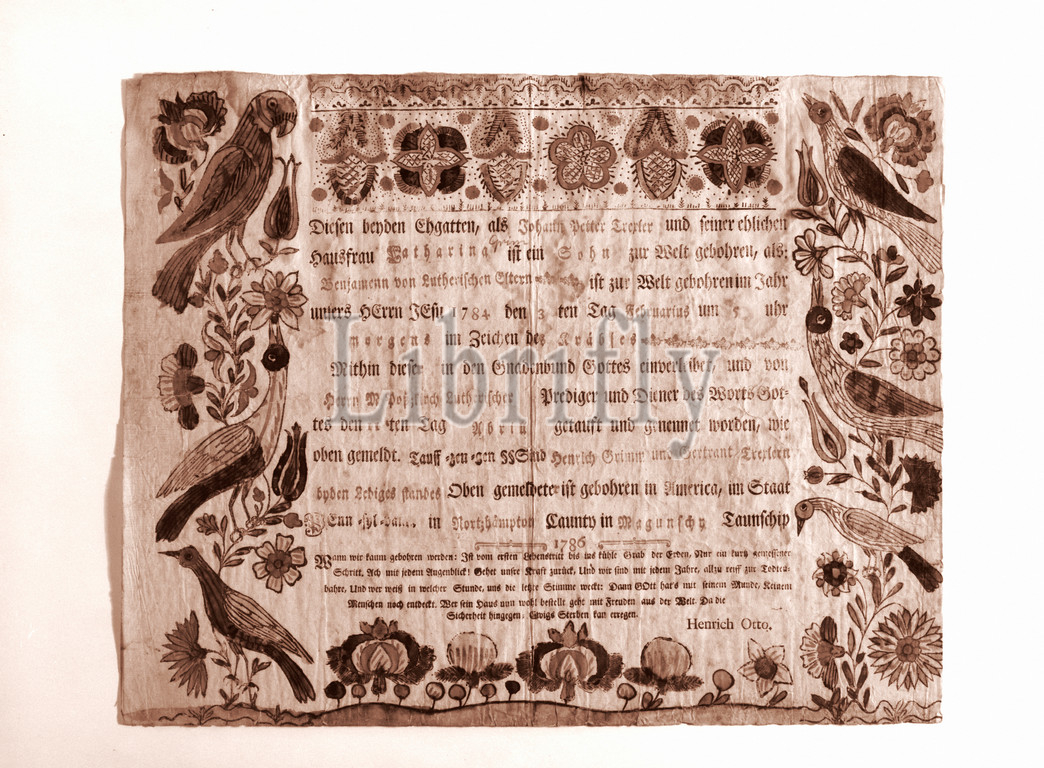 Diesen beyden Ehgatten, als Johann Peiter Trexler und seiner ehlichen
Hausfrau Catharina ist ein Sohn zur Welt gebohren, als:
Benjamenn von Lutherischen Eltern ist zur Welt gebohren im Jahr
unsers HErrn JEsu 1784 den 3 ten Tag Februarius um 5 uhr
morgens im Zeichen des Kräbses
Mithin dieser in den Gnadenbund Gottes einverleibet, und von
Herrn Lutherischer Prediger und Diener des Worts Got-
tes den ten Tag getauft und genennet worden, wie
oben gemeldt. Tauff zen gen SSSind Henrich Grimm und Gertraut Trexlern
byden Lediges standes Oben gemeldete ist gebohren in America, im Staat
in Northämpton Caunty in Magunschy Taunschip
1786
Wann wir kaum gebohren werden: Ist vom ersten Lebenstritt bis ins kühle Grab der Erden, Nur ein kurtz gemessner
Schritt, Ach mit jedem Augenblick! Gehet unsre Kraft zurück, Und wir sind mit jedem Jahre, allzu reiff zur Todten-
bahre, Und wer weiß in welcher Stunde, uns die letzte Stimme weckt: Dann GOtt hat's mit seinem Munde, Keinem
Menschen noch entdeckt. Wer sein Haus nun wohl bestellt geht mit Freuden aus der Welt. Da die
Sicherheit hingegen, Ewigs Sterben kan erregen.
Henrich Otto.
Librifly